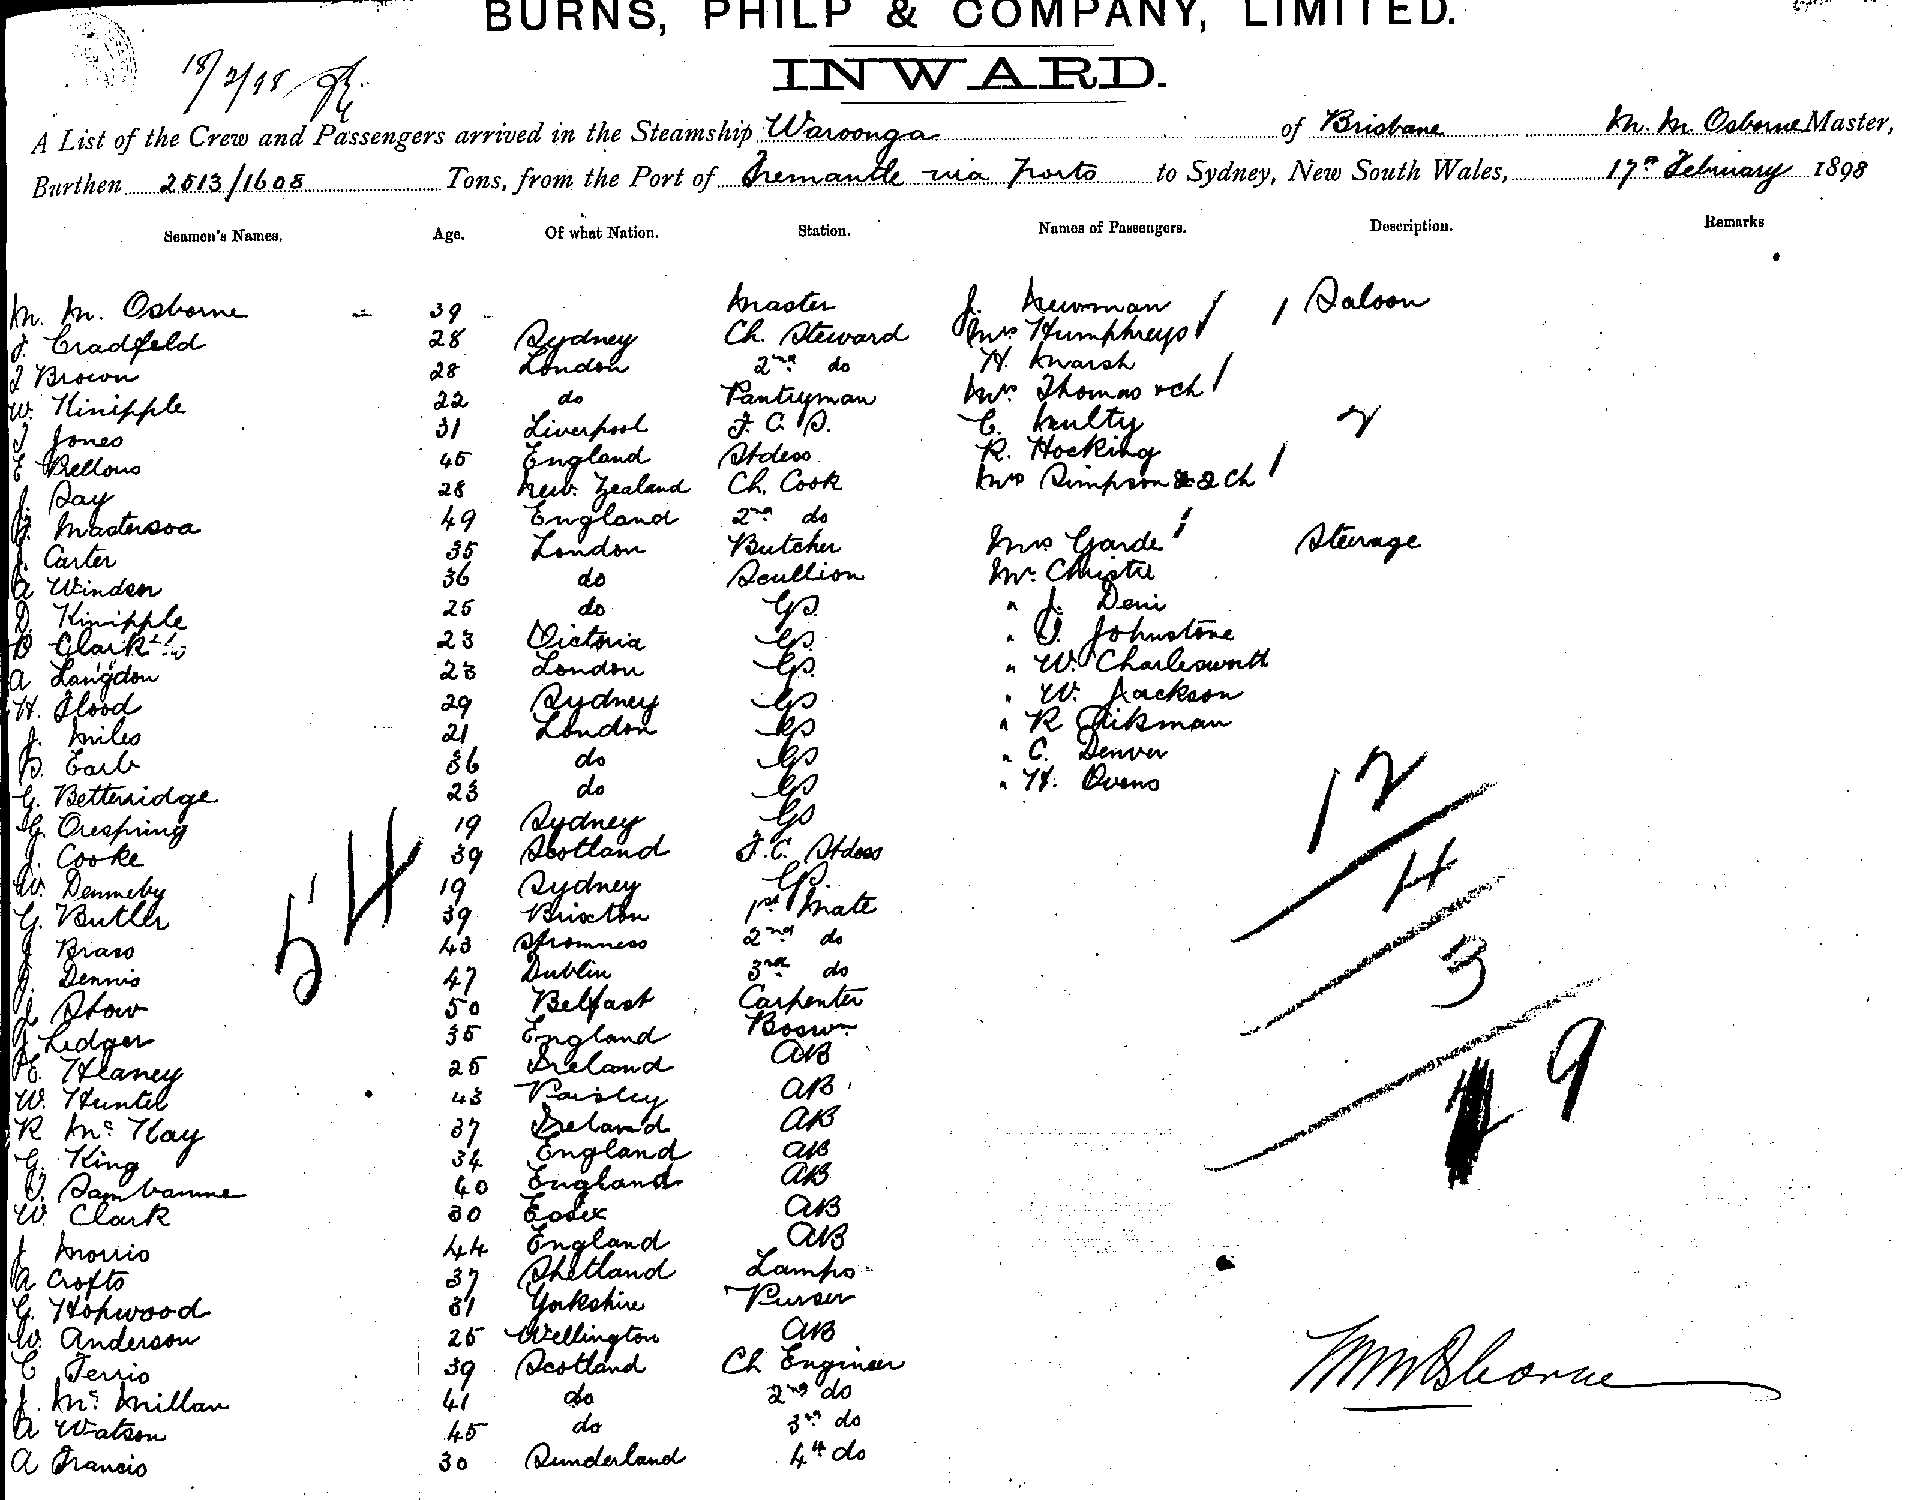 BURNS, PHILP & COMPANY, LIMITED.
INWARD.
18/2/98
A List of the Crew and Passengers arrived in the Steamship Waroonga of Brisbane M. M. Osborne Master,
Burthen 2513/1608 Tons, from the Port of Fremantle via ports to Sydney, New South Wales, 17th February 1898
Seamen's Names. Age. Of what Nation. Station. Names of Passengers. Description. Remarks
M. M. Osborne 39 Master J. Newman 1 Saloon
J. Cradfeld 28 Sydney Ch. Steward Mrs Humphreys
J Brown 28 London 2nd do H. Marsh
W. Kinipple 22 do Pantryman Mrs Thomas & ch
J Jones 31 Liverpool F. C. S. C. Multy 2
E Bellous 45 England Stdess R. Hocking
J. Day 28 New Zealand Ch. Cook Mrs Simpson & 2 Ch
J. Masterson 49 England 2nd do
J. Carter 35 London Butcher Mrs Garde Steerage
A Windsor 36 do Scullion Mr. Christie
D. Kinipple 25 do GS. " J. Deni
B Clark 23 Victoria GS. " J. Johnstone
A Langdon 23 London GS. " W. Charlesworth
H. Flood 29 Sydney GS " W. Jackson
J. Miles 21 London GS " R Aikman
B. Earle 36 do GS " C. Denver
G. Betteridge 23 do GS " H. Ovens
G. Orespring 19 Sydney GS 12
J. Cooke 39 Scotland F.C. Stdess 4
W. Denneby 19 Sydney GS
G. Butler 39 Brixton 1st Mate
54
J Brass 43 Stromness 2nd do
J. Dennis 47 Dublin 3rd do 3
J Stow 50 Belfast Carpenter
J Ledger 35 England Boswn
E. Heaney 25 Ireland AB 19
W. Hunter 43 Paisley AB
R McKay 37 Ireland AB
G. King 34 England AB
J. Sambamme 40 England AB
W. Clark 30 Essex AB
J Morris 44 England AB
A Crofts 37 Shetland Lamps
G. Hopwood 31 Yorkshire Purser
W. Anderson 25 Wellington AB
C Ferris 39 Scotland Ch Engineer
M M Osborne
J. McMillan 41 do 2nd do
A Watson 45 do 3rd do
A Francis 30 Sunderland 4th do